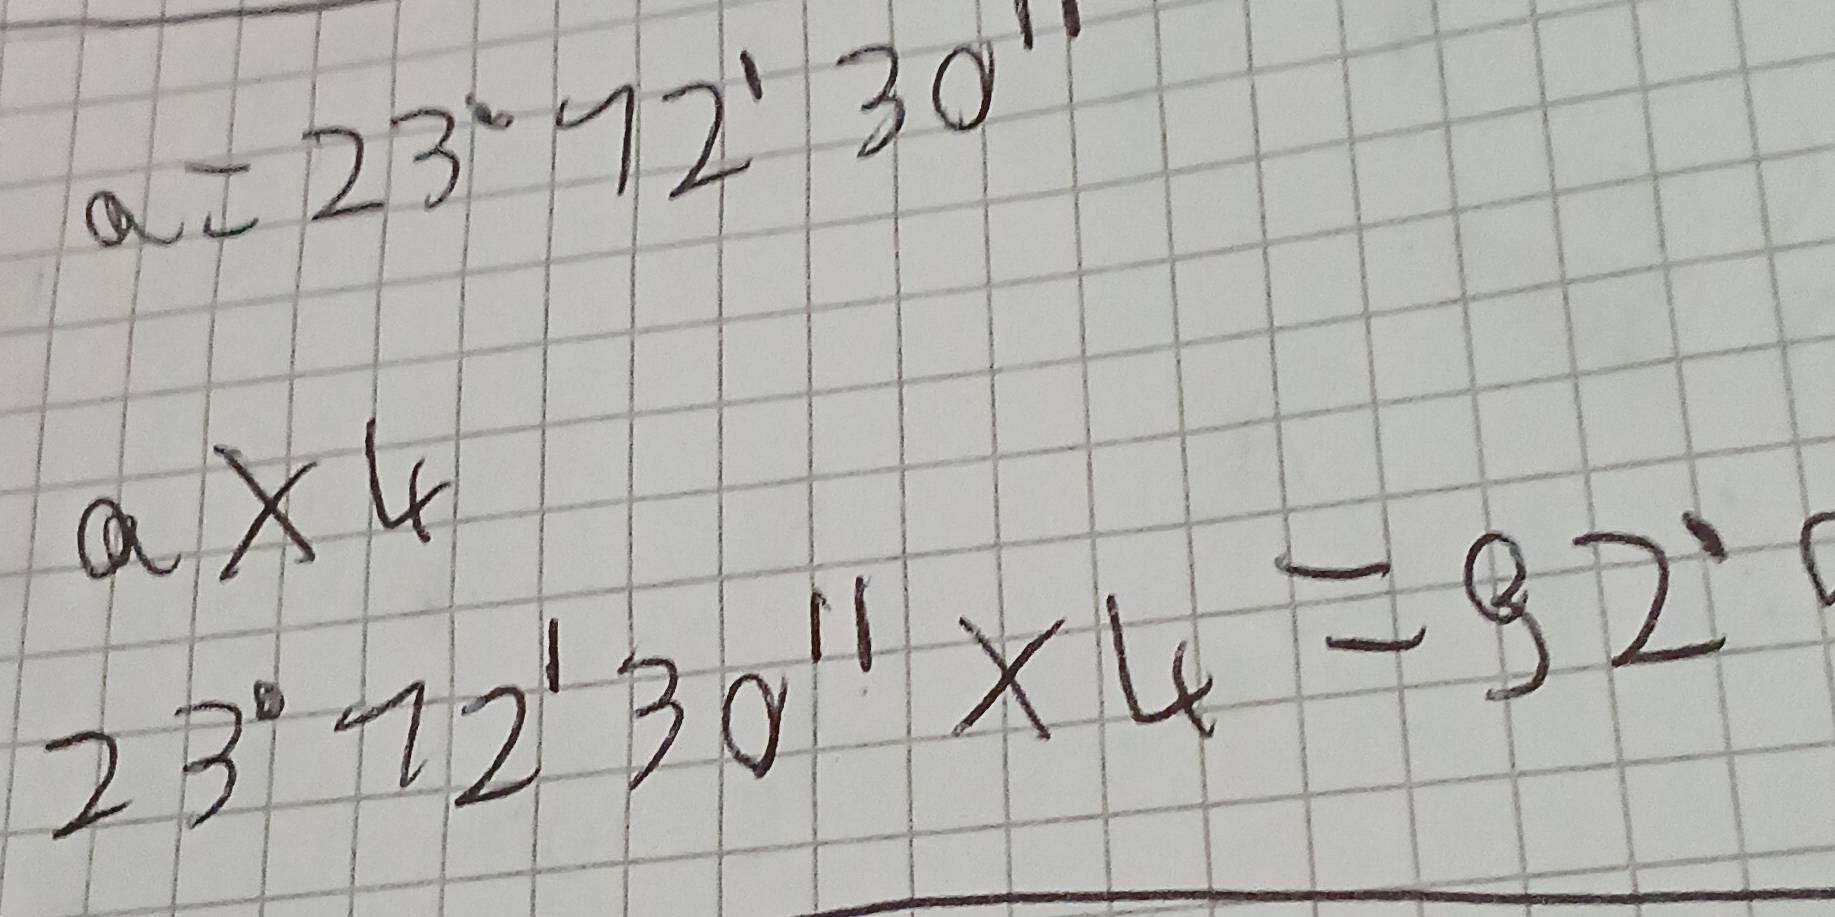 a = 23° 12' 30"
a X 4
23° 12' 30" X 4 = 92°